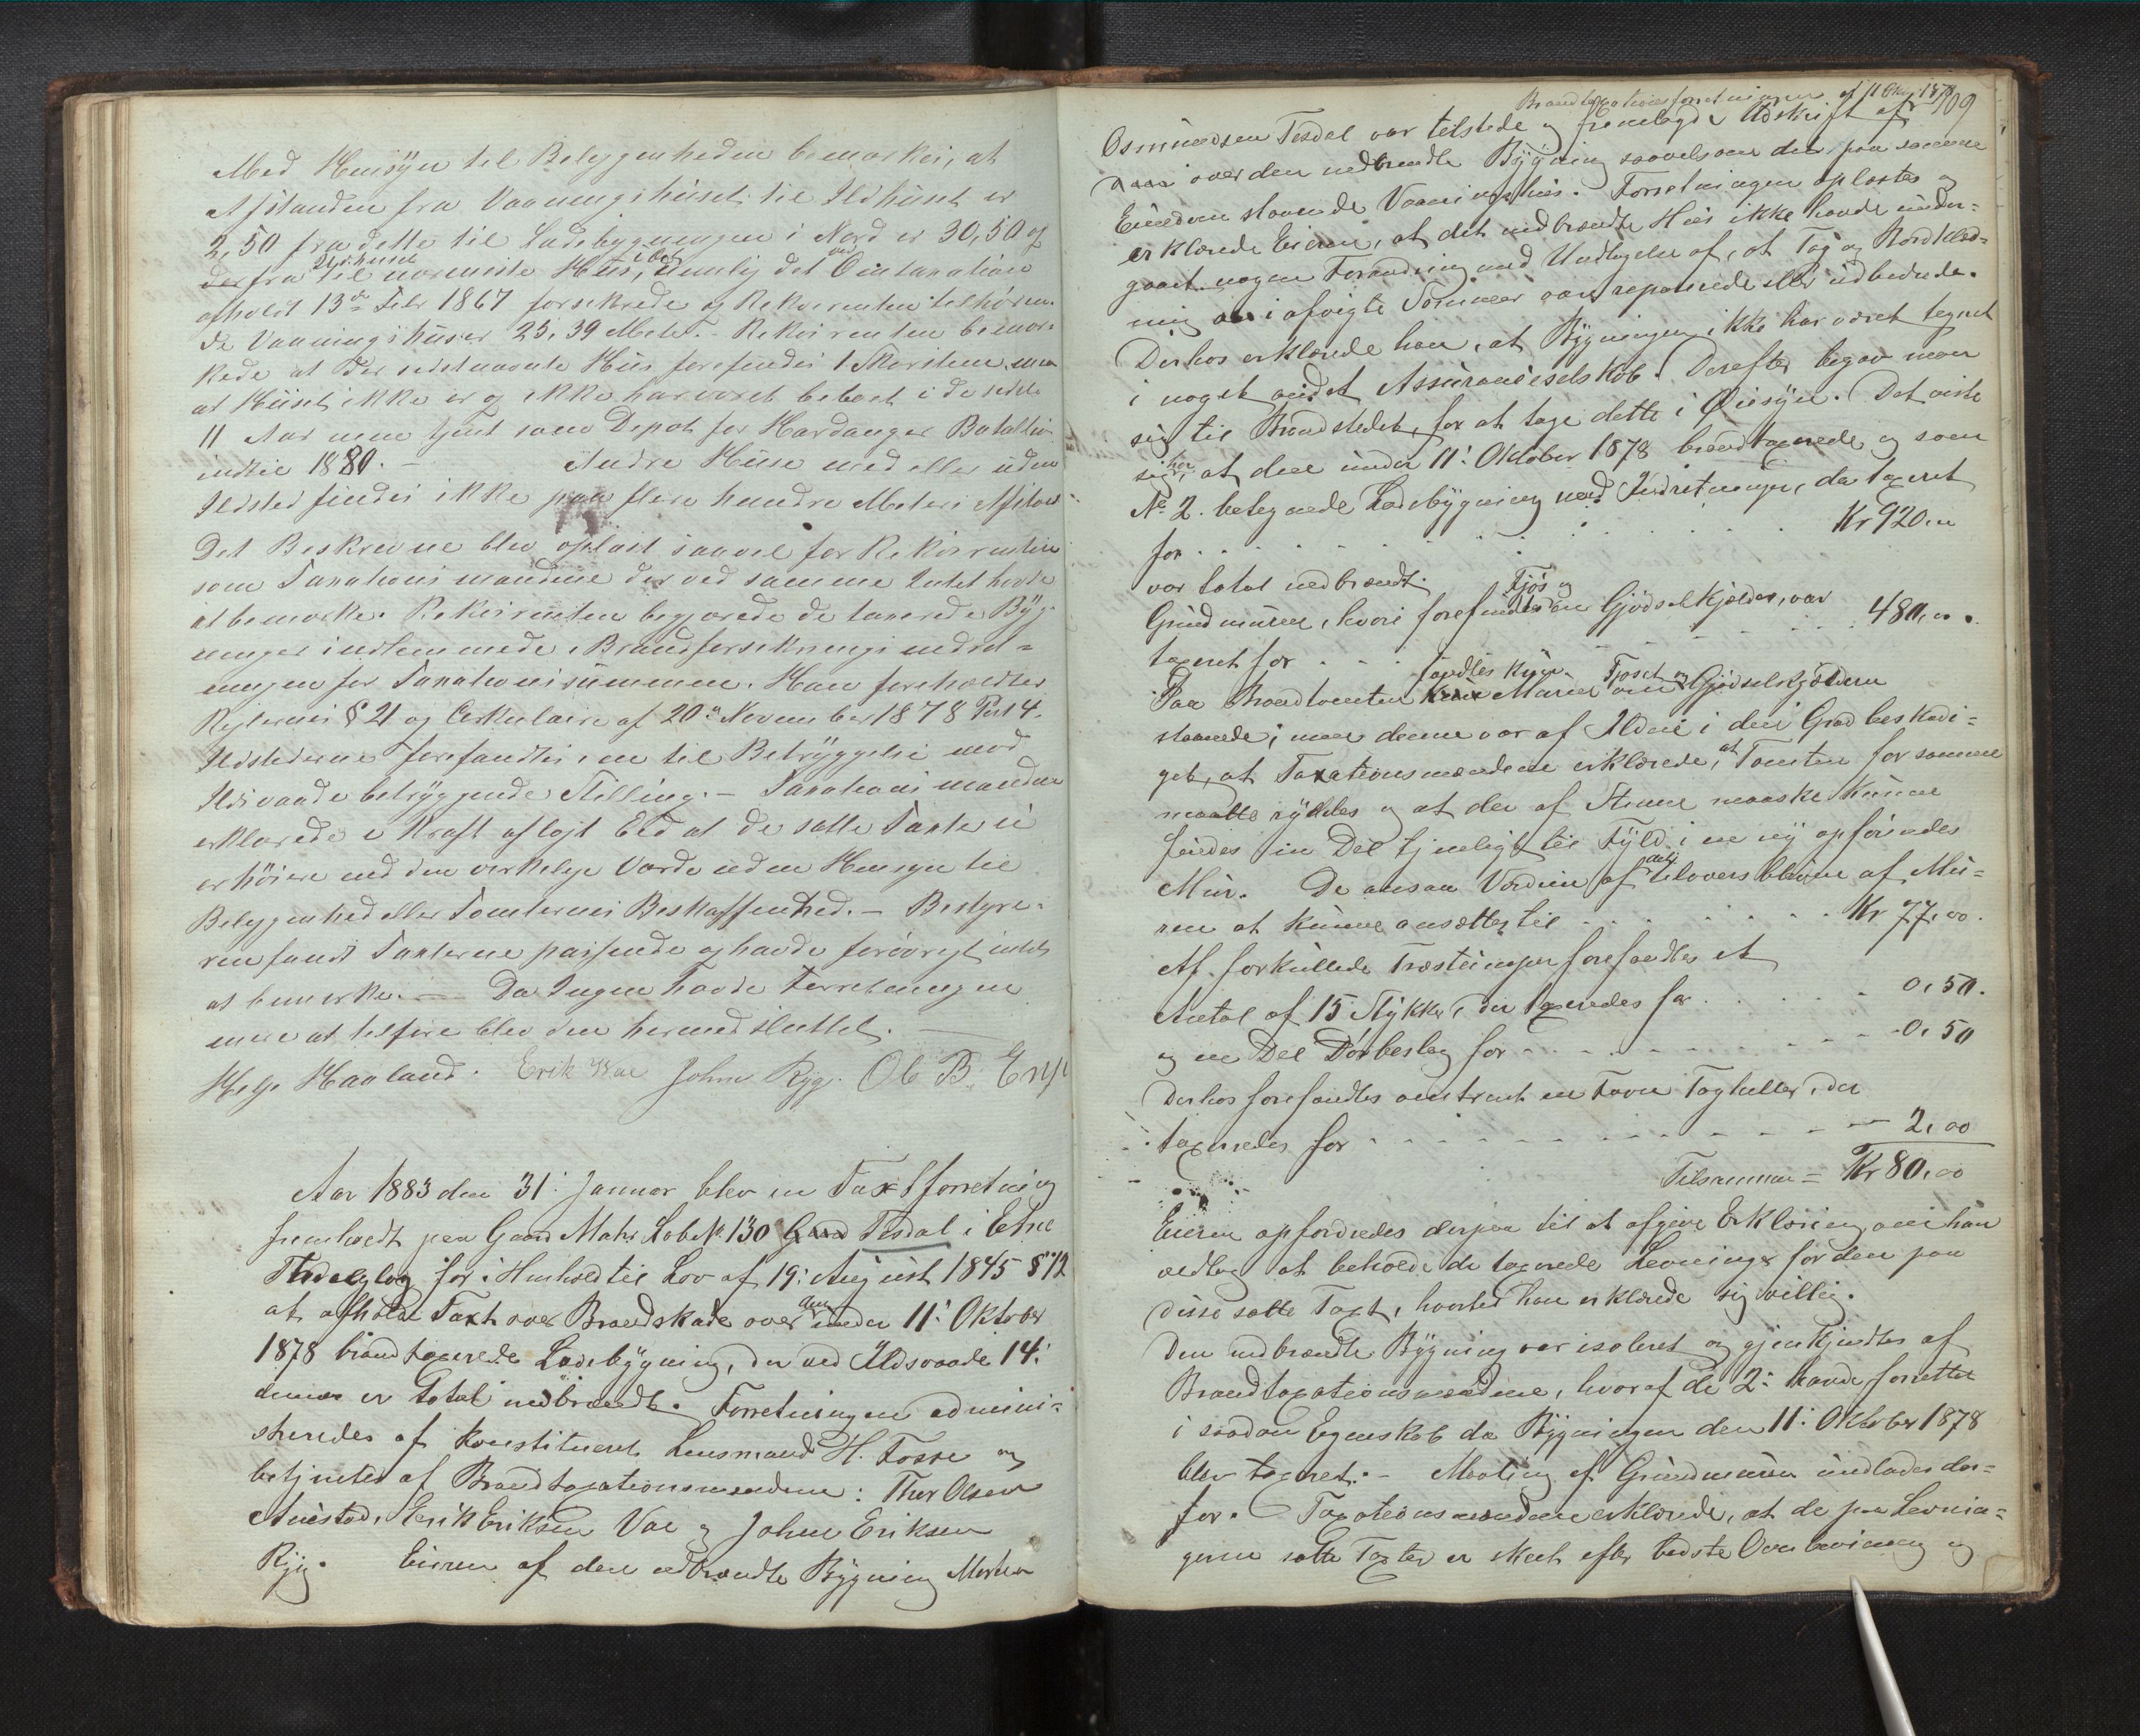 Med Hensyn til Beleggenheden bemærkes, at
Afstanden fra Vaaningshuset til Ildhuset er
2,50 fra dette til Ladebygningen i Nord er 30,50 og
derfra til nærmeste Hus, nemlig det Omtaxation
afholdt 13de Febr 1867 forsikrede og Rekvirenten tilhøren-
de Vaaningshuset 25,39 Meter. - Rekvirenten bemær-
kede at der sidstnævnte Hus forefindes 1 Skorsten men
at Huset ikke er og ikke har været beboet i de sidste
11 Aar men tjent som Depot for Hardanger Batallion
indtil 1880. - Andre Huse med eller uden
Ildsted findes ikke paa flere hundre Meters Afstand
Det Beskrevne blev oplæst saavel for Rekvirenten
som Taxationsmændene der ved samme Intet havde
at bemærke. Rekvirenten begjærede de taxerede Byg-
ninger indlemmede i Brandforsikringsindret-
ningen for Taxationssummen. Han foreholdtes
Reglernes § 21 og Cirkulaire af 20de November 1878 Post 4.
Ildstederne forefandtes i en til Betryggelse mod
Ildsvaade betryggende Stilling. - Taxationsmændene
erklærede i Kraft aflagt Eed at de satte Taxter ei
er høiere end den virkelige Værdi uden Hensyn til
Beleggenhed eller Tomternes Beskaffenhed. - Bestyre-
ren fandt Taxterne passende og havde forøvrigt intet
at bemærke. - Da Ingen havde Forretningen
mere at tilføre blev den hermed sluttet. -
Helge Haaland. Erik Vae John Ryg. Ole B. Enge
Aar 1883 den 31: Januar blev en Taxtforretning
fremholdt paa Gaard Matr Løbe No 130 Tesdal i Etne
Thinglag for i Henhold til Lov af 19: August 1845 § 12
at afholde Taxt over Brandskade over den under 11: Oktober
1878 brandtaxerede Ladebygning, der ved Ildsvaade 14:
dennes er total nedbrændt. Forretningen admini-
streredes af konstitueret Lensmand H. Fosse og
betjentes af Brandtaxationsmændene: Thor Olsen
Austad, Erik Eriksen Vae og John Eriksen
Ryg. Eieren af den nedbrændte Bygning Morten
109
Brandtaxationsforretningen af 11 Oktbr 1878
Osmundsen Tesdal var tilstede og fremlagde Udskrift af
over den nedbrændte Bygning saavelsom den paa samme
Eiendom staaende Vaaningshus. Forretningen oplæstes og
erklærede Eieren, at det nedbrændte Hus ikke havde under-
gaaet nogen Forandring med Undtagelse af, at Tag og Bordklæd-
ning i afvigte Sommer var reparerede eller udbedrede.
Derhos erklærede han, at Bygningen ikke har været tegnet
i noget andet Assuranceselskab. Derefter begav man
sig til Brandstedet, for at tage dette i Øiesyn. Det viste
sig her, at den under 11: Oktober 1878 brandtaxerede og som
No 2. betegnede Ladebygning med Indretninger, da taxeret
for . . . . . . . . . . Kr 920,00
var total nedbrændt.
Grundmuren, hvori forefindes Fjøs og en Gjødselkjælder, var
taxeret for . . . . . . . . 480,00.
Paa Brandtomten fandtes kun Muren om Fjøset og Gjødselskjælderen
staaende; men denne var af Ilden i den Grad beskadi-
get, at Taxationsmændene erklærede, at Tomten for samme
maatte ryddes og at der af Stene maaske kunne
findes en Del tjenligt til Fyld i en ny opførendes
Mur. De ansaa Værdien af det tiloversblevne af Mu-
ren at kunne ansættes til . . . . . . . Kr 77,00.
Af forkullede Træstumper forefandtes et
Antal af 15 Stykker, der taxeredes for . . . . . 0,50.
og en Del Dørbeslag for . . . . . . . . 0,50
Derhos forefandtes omtrent en Favn Tagheller, der
taxeredes for . . . . . . . . . . 2,00
Tilsammen = Kr 80,00
Eieren opfordredes derpaa til at afgive Erklæring om han
vedtog at beholde de taxerede Levninger for den paa
disse satte Taxt, hvortil han erklærede sig villig.
Den nedbrændte Bygning var isoleret og gjenkjendtes af
Brandtaxationsmændene, hvoraf de 2: havde forrettet
i saadan Egenskab da Bygningen den 11: Oktober 1878
blev taxeret. - Maaling af Grundmuren undlades der-
for. Taxationsmændene erklærede, at de paa Levnin-
gerne satte Taxter er skeet efter bedste Overbevisning og